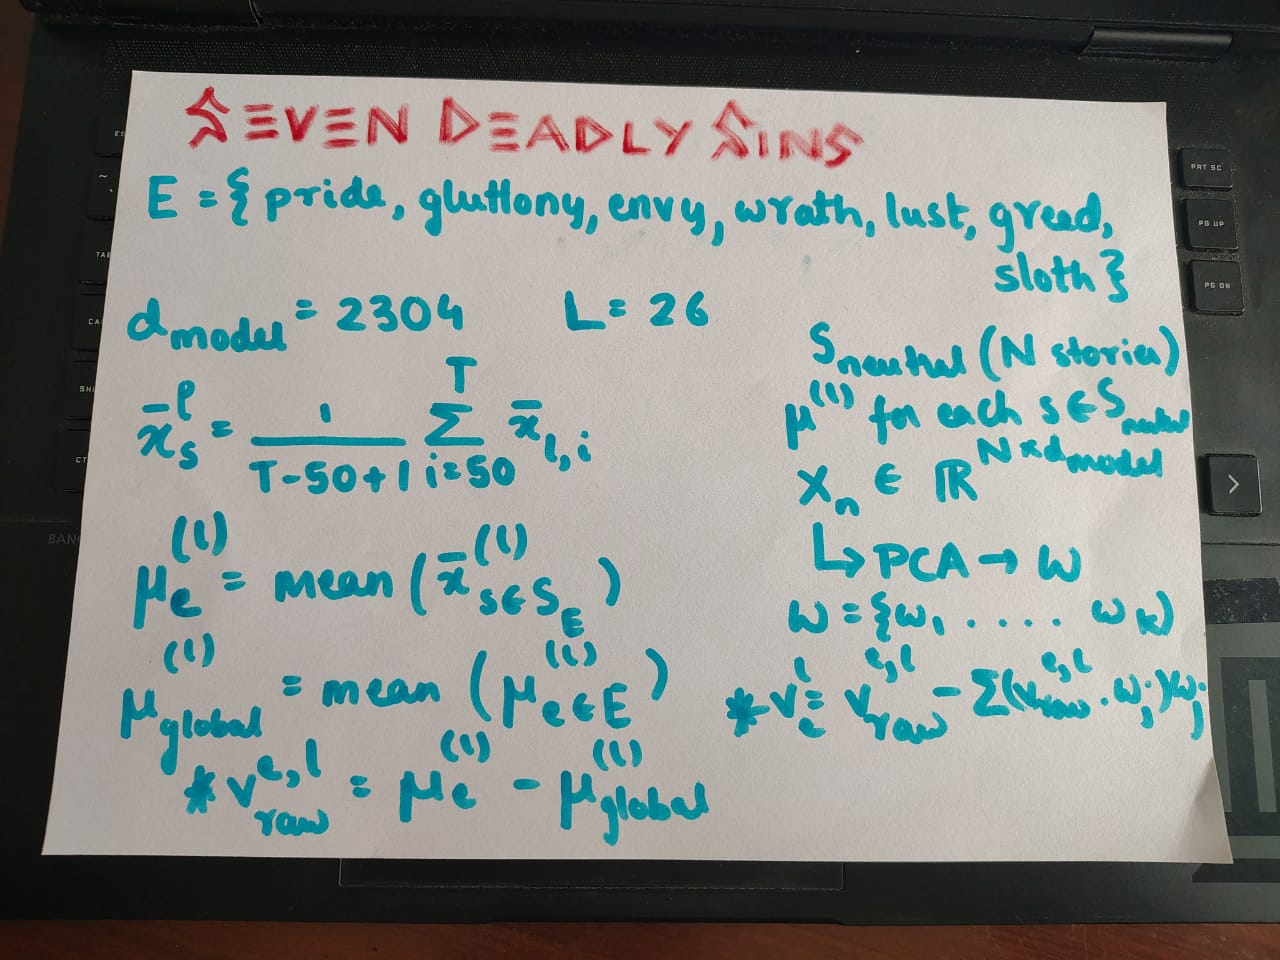 SEVEN DEADLY SINS
E = { pride, gluttony, envy, wrath, lust, greed,
sloth }
d_model = 2304 L = 26
x̄_s^l = 1/(T-50+1) Σ_{i=50}^{T} x̄_{l,i}
μ_e^(l) = mean ( x̄^(l)_{s∈S_E} )
μ_global^(l) = mean ( μ^(l)_{e∈E} )
* v_raw^{e,l} = μ_e^(l) - μ_global^(l)
S_neutral (N stories)
μ^(l) for each s ∈ S_neutral
X_n ∈ ℝ^{N×d_model}
↳ PCA → W
W = {w_1 .... w_k)
* v_e^l = v_raw^{e,l} - Σ(v_raw^{e,l} . w_j)w_j
PRT SC
PG UP
PG DN
>